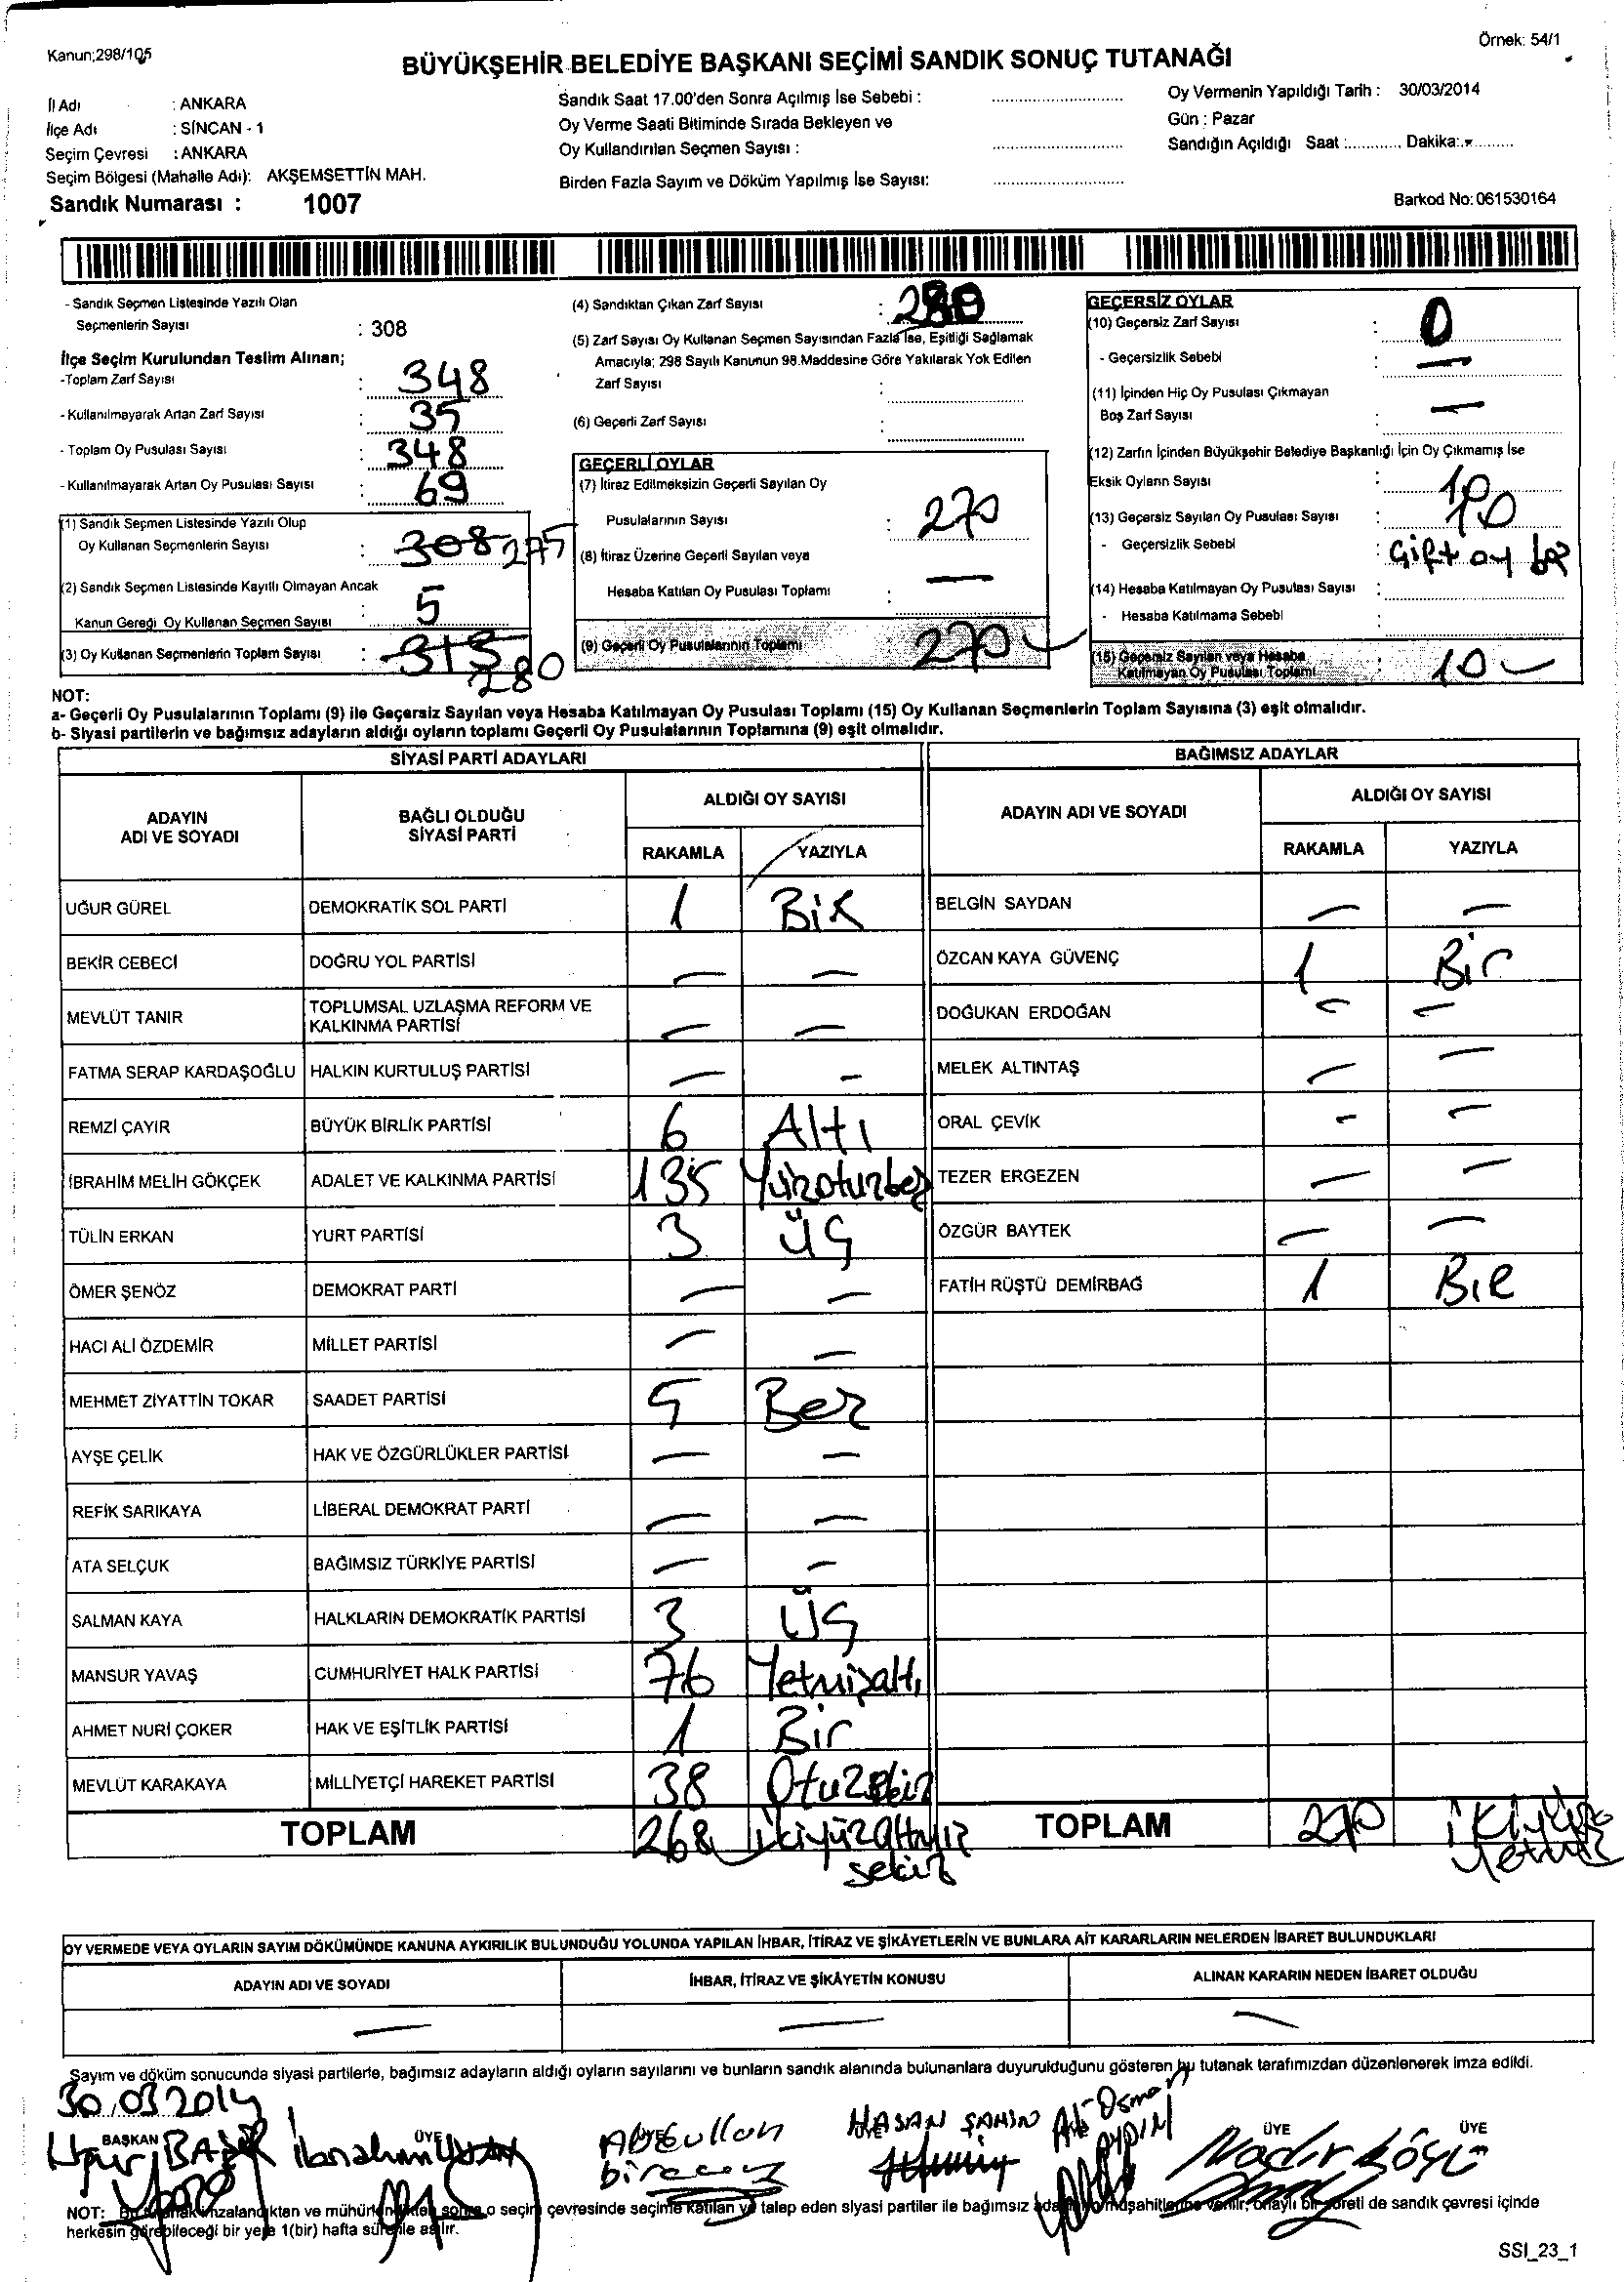 Kanun;298/105
Örnek: 54/1
BÜYÜKŞEHİR BELEDİYE BAŞKANI SEÇİMİ SANDIK SONUÇ TUTANAĞI
İl Adı : ANKARA
İlçe Adı : SİNCAN - 1
Seçim Çevresi : ANKARA
Seçim Bölgesi (Mahalle Adı): AKŞEMSETTİN MAH.
Sandık Numarası : 1007
Sandık Saat 17.00'den Sonra Açılmış İse Sebebi :
Oy Verme Saati Bitiminde Sırada Bekleyen ve
Oy Kullandırılan Seçmen Sayısı :
Birden Fazla Sayım ve Döküm Yapılmış İse Sayısı:
Oy Vermenin Yapıldığı Tarih : 30/03/2014
Gün : Pazar
Sandığın Açıldığı Saat :............ Dakika:..........
Barkod No: 061530164
- Sandık Seçmen Listesinde Yazılı Olan
Seçmenlerin Sayısı : 308
İlçe Seçim Kurulundan Teslim Alınan;
-Toplam Zarf Sayısı : 348
- Kullanılmayarak Artan Zarf Sayısı : 35
- Toplam Oy Pusulası Sayısı : 348
- Kullanılmayarak Artan Oy Pusulası Sayısı : 69
(1) Sandık Seçmen Listesinde Yazılı Olup
Oy Kullanan Seçmenlerin Sayısı : 308 275
(2) Sandık Seçmen Listesinde Kayıtlı Olmayan Ancak
Kanun Gereği Oy Kullanan Seçmen Sayısı : 5
(3) Oy Kullanan Seçmenlerin Toplam Sayısı : 313
280
(4) Sandıktan Çıkan Zarf Sayısı : 280
(5) Zarf Sayısı Oy Kullanan Seçmen Sayısından Fazla İse, Eşitliği Sağlamak
Amacıyla; 298 Sayılı Kanunun 98.Maddesine Göre Yakılarak Yok Edilen
Zarf Sayısı :
(6) Geçerli Zarf Sayısı :
GEÇERLİ OYLAR
(7) İtiraz Edilmeksizin Geçerli Sayılan Oy
Pusulalarının Sayısı : 270
(8) İtiraz Üzerine Geçerli Sayılan veya
Hesaba Katılan Oy Pusulası Toplamı : —
(9) Geçerli Oy Pusulalarının Toplamı 270
GEÇERSİZ OYLAR
(10) Geçersiz Zarf Sayısı : 0
- Geçersizlik Sebebi : —
(11) İçinden Hiç Oy Pusulası Çıkmayan
Boş Zarf Sayısı : —
(12) Zarfın İçinden Büyükşehir Belediye Başkanlığı İçin Oy Çıkmamış İse
Eksik Oyların Sayısı :
(13) Geçersiz Sayılan Oy Pusulası Sayısı : 10
- Geçersizlik Sebebi : Çift oy
(14) Hesaba Katılmayan Oy Pusulası Sayısı :
- Hesaba Katılmama Sebebi
(15) Geçersiz Sayılan veya Hesaba
Katılmayan Oy Pusulası Toplamı : 10
NOT:
a- Geçerli Oy Pusulalarının Toplamı (9) ile Geçersiz Sayılan veya Hesaba Katılmayan Oy Pusulası Toplamı (15) Oy Kullanan Seçmenlerin Toplam Sayısına (3) eşit olmalıdır.
b- Siyasi partilerin ve bağımsız adayların aldığı oyların toplamı Geçerli Oy Pusulalarının Toplamına (9) eşit olmalıdır.
SİYASİ PARTİ ADAYLARI
ADAYIN
ADI VE SOYADI
BAĞLI OLDUĞU
SİYASİ PARTİ
ALDIĞI OY SAYISI
RAKAMLA YAZIYLA
UĞUR GÜREL DEMOKRATİK SOL PARTİ 1 Bir
BEKİR CEBECİ DOĞRU YOL PARTİSİ — —
MEVLÜT TANIR TOPLUMSAL UZLAŞMA REFORM VE
KALKINMA PARTİSİ — —
FATMA SERAP KARDAŞOĞLU HALKIN KURTULUŞ PARTİSİ — —
REMZİ ÇAYIR BÜYÜK BİRLİK PARTİSİ 6 Altı
İBRAHİM MELİH GÖKÇEK ADALET VE KALKINMA PARTİSİ 135 Yüzotuzbeş
TÜLİN ERKAN YURT PARTİSİ 3 Üç
ÖMER ŞENÖZ DEMOKRAT PARTİ — —
HACI ALİ ÖZDEMİR MİLLET PARTİSİ — —
MEHMET ZİYATTİN TOKAR SAADET PARTİSİ 5 Beş
AYŞE ÇELİK HAK VE ÖZGÜRLÜKLER PARTİSİ — —
REFİK SARIKAYA LİBERAL DEMOKRAT PARTİ — —
ATA SELÇUK BAĞIMSIZ TÜRKİYE PARTİSİ — —
SALMAN KAYA HALKLARIN DEMOKRATİK PARTİSİ 3 Üç
MANSUR YAVAŞ CUMHURİYET HALK PARTİSİ 76 Yetmişaltı
AHMET NURİ ÇOKER HAK VE EŞİTLİK PARTİSİ 1 Bir
MEVLÜT KARAKAYA MİLLİYETÇİ HAREKET PARTİSİ 38 Otuzsekiz
TOPLAM 268 ikiyüzaltmış
sekiz
BAĞIMSIZ ADAYLAR
ADAYIN ADI VE SOYADI
ALDIĞI OY SAYISI
RAKAMLA YAZIYLA
BELGİN SAYDAN — —
ÖZCAN KAYA GÜVENÇ 1 Bir
DOĞUKAN ERDOĞAN — —
MELEK ALTINTAŞ — —
ORAL ÇEVİK — —
TEZER ERGEZEN — —
ÖZGÜR BAYTEK — —
FATİH RÜŞTÜ DEMİRBAĞ 1 Bir
TOPLAM 270 ikiyüz
Yetmiş
OY VERMEDE VEYA OYLARIN SAYIM DÖKÜMÜNDE KANUNA AYKIRILIK BULUNDUĞU YOLUNDA YAPILAN İHBAR, İTİRAZ VE ŞİKÂYETLERİN VE BUNLARA AİT KARARLARIN NELERDEN İBARET BULUNDUKLARI
ADAYIN ADI VE SOYADI İHBAR, İTİRAZ VE ŞİKÂYETİN KONUSU ALINAN KARARIN NEDEN İBARET OLDUĞU
— — —
Sayım ve döküm sonucunda siyasi partilerle, bağımsız adayların aldığı oyların sayılarını ve bunların sandık alanında bulunanlara duyurulduğunu gösteren bu tutanak tarafımızdan düzenlenerek imza edildi.
30.03.2014
BAŞKAN ÜYE ÜYE ÜYE
Uğur İbrahim Abdullah HASAN ŞAHİN Ali Osman Nadir
NOT: Bu tutanak imzalandıktan ve mühürlendikten sonra o seçim çevresinde seçime katılan ve talep eden siyasi partiler ile bağımsız aday müşahitlerine verilir, onaylı bir sureti de sandık çevresi içinde
herkesin görebileceği bir yere 1(bir) hafta süreyle asılır.
SSI_23_1